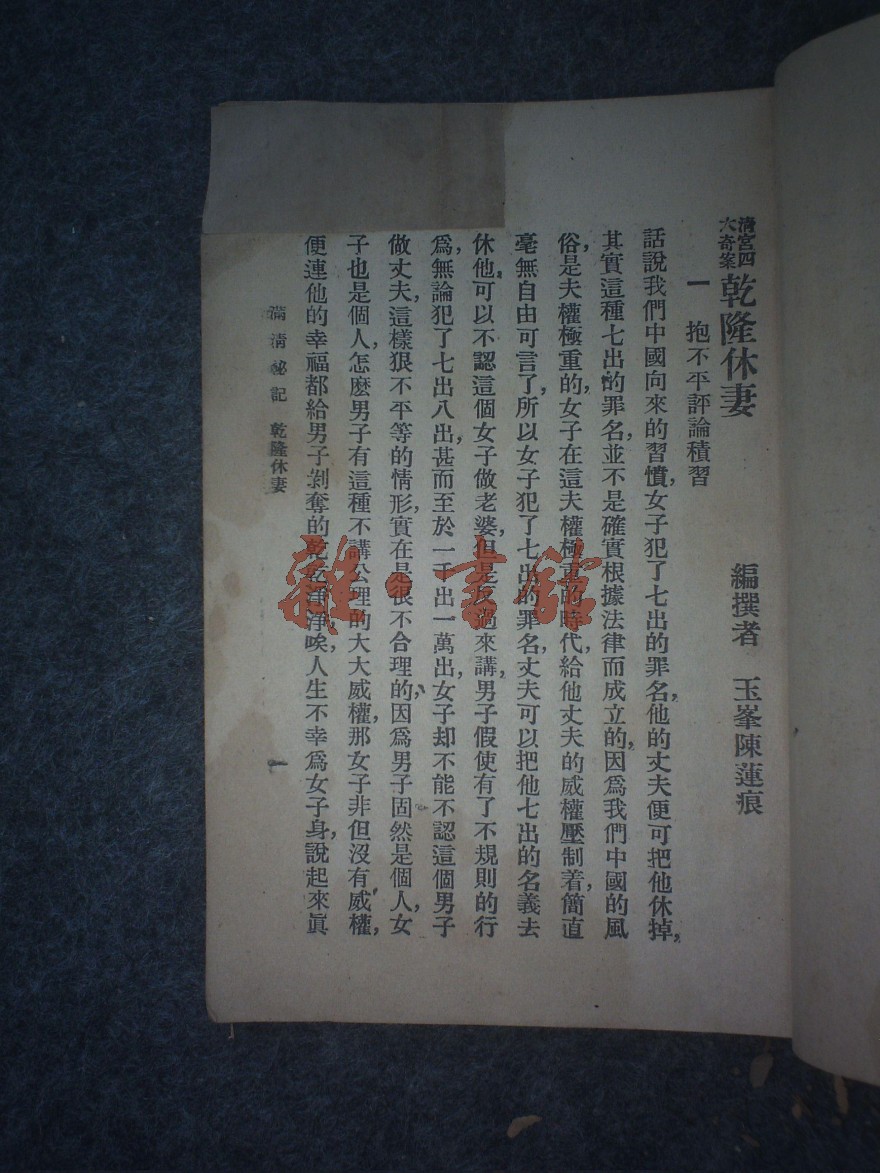 清宮四
大奇案
乾隆休妻
編撰者　玉峯陳蓮痕
一　抱不平評論積習
話說我們中國向來的習慣，女子犯了七出的罪名，他的丈夫便可把他休掉，
其實這種七出的罪名，並不是確實根據法律而成立的，因爲我們中國的風
俗，是夫權極重的，女子在這夫權極重的時代，給他丈夫的威權壓制着，簡直
毫無自由可言了，所以女子犯了七出的罪名，丈夫可以把他七出的名義去
休他，可以不認這個女子做老婆，但是反過來講，男子假使有了不規則的行
爲，無論犯了七出八出，甚而至於一千出一萬出，女子却不能不認這個男子
做丈夫，這樣狠不平等的情形，實在是很不合理的，因爲男子固然是個人，女
子也是個人，怎麽男子有這種不講公理的大大威權，那女子非但沒有威權，
便連他的幸福都給男子剝奪的乾乾淨淨，唉，人生不幸爲女子身，說起來眞
滿清祕記　乾隆休妻
一
雜·書館